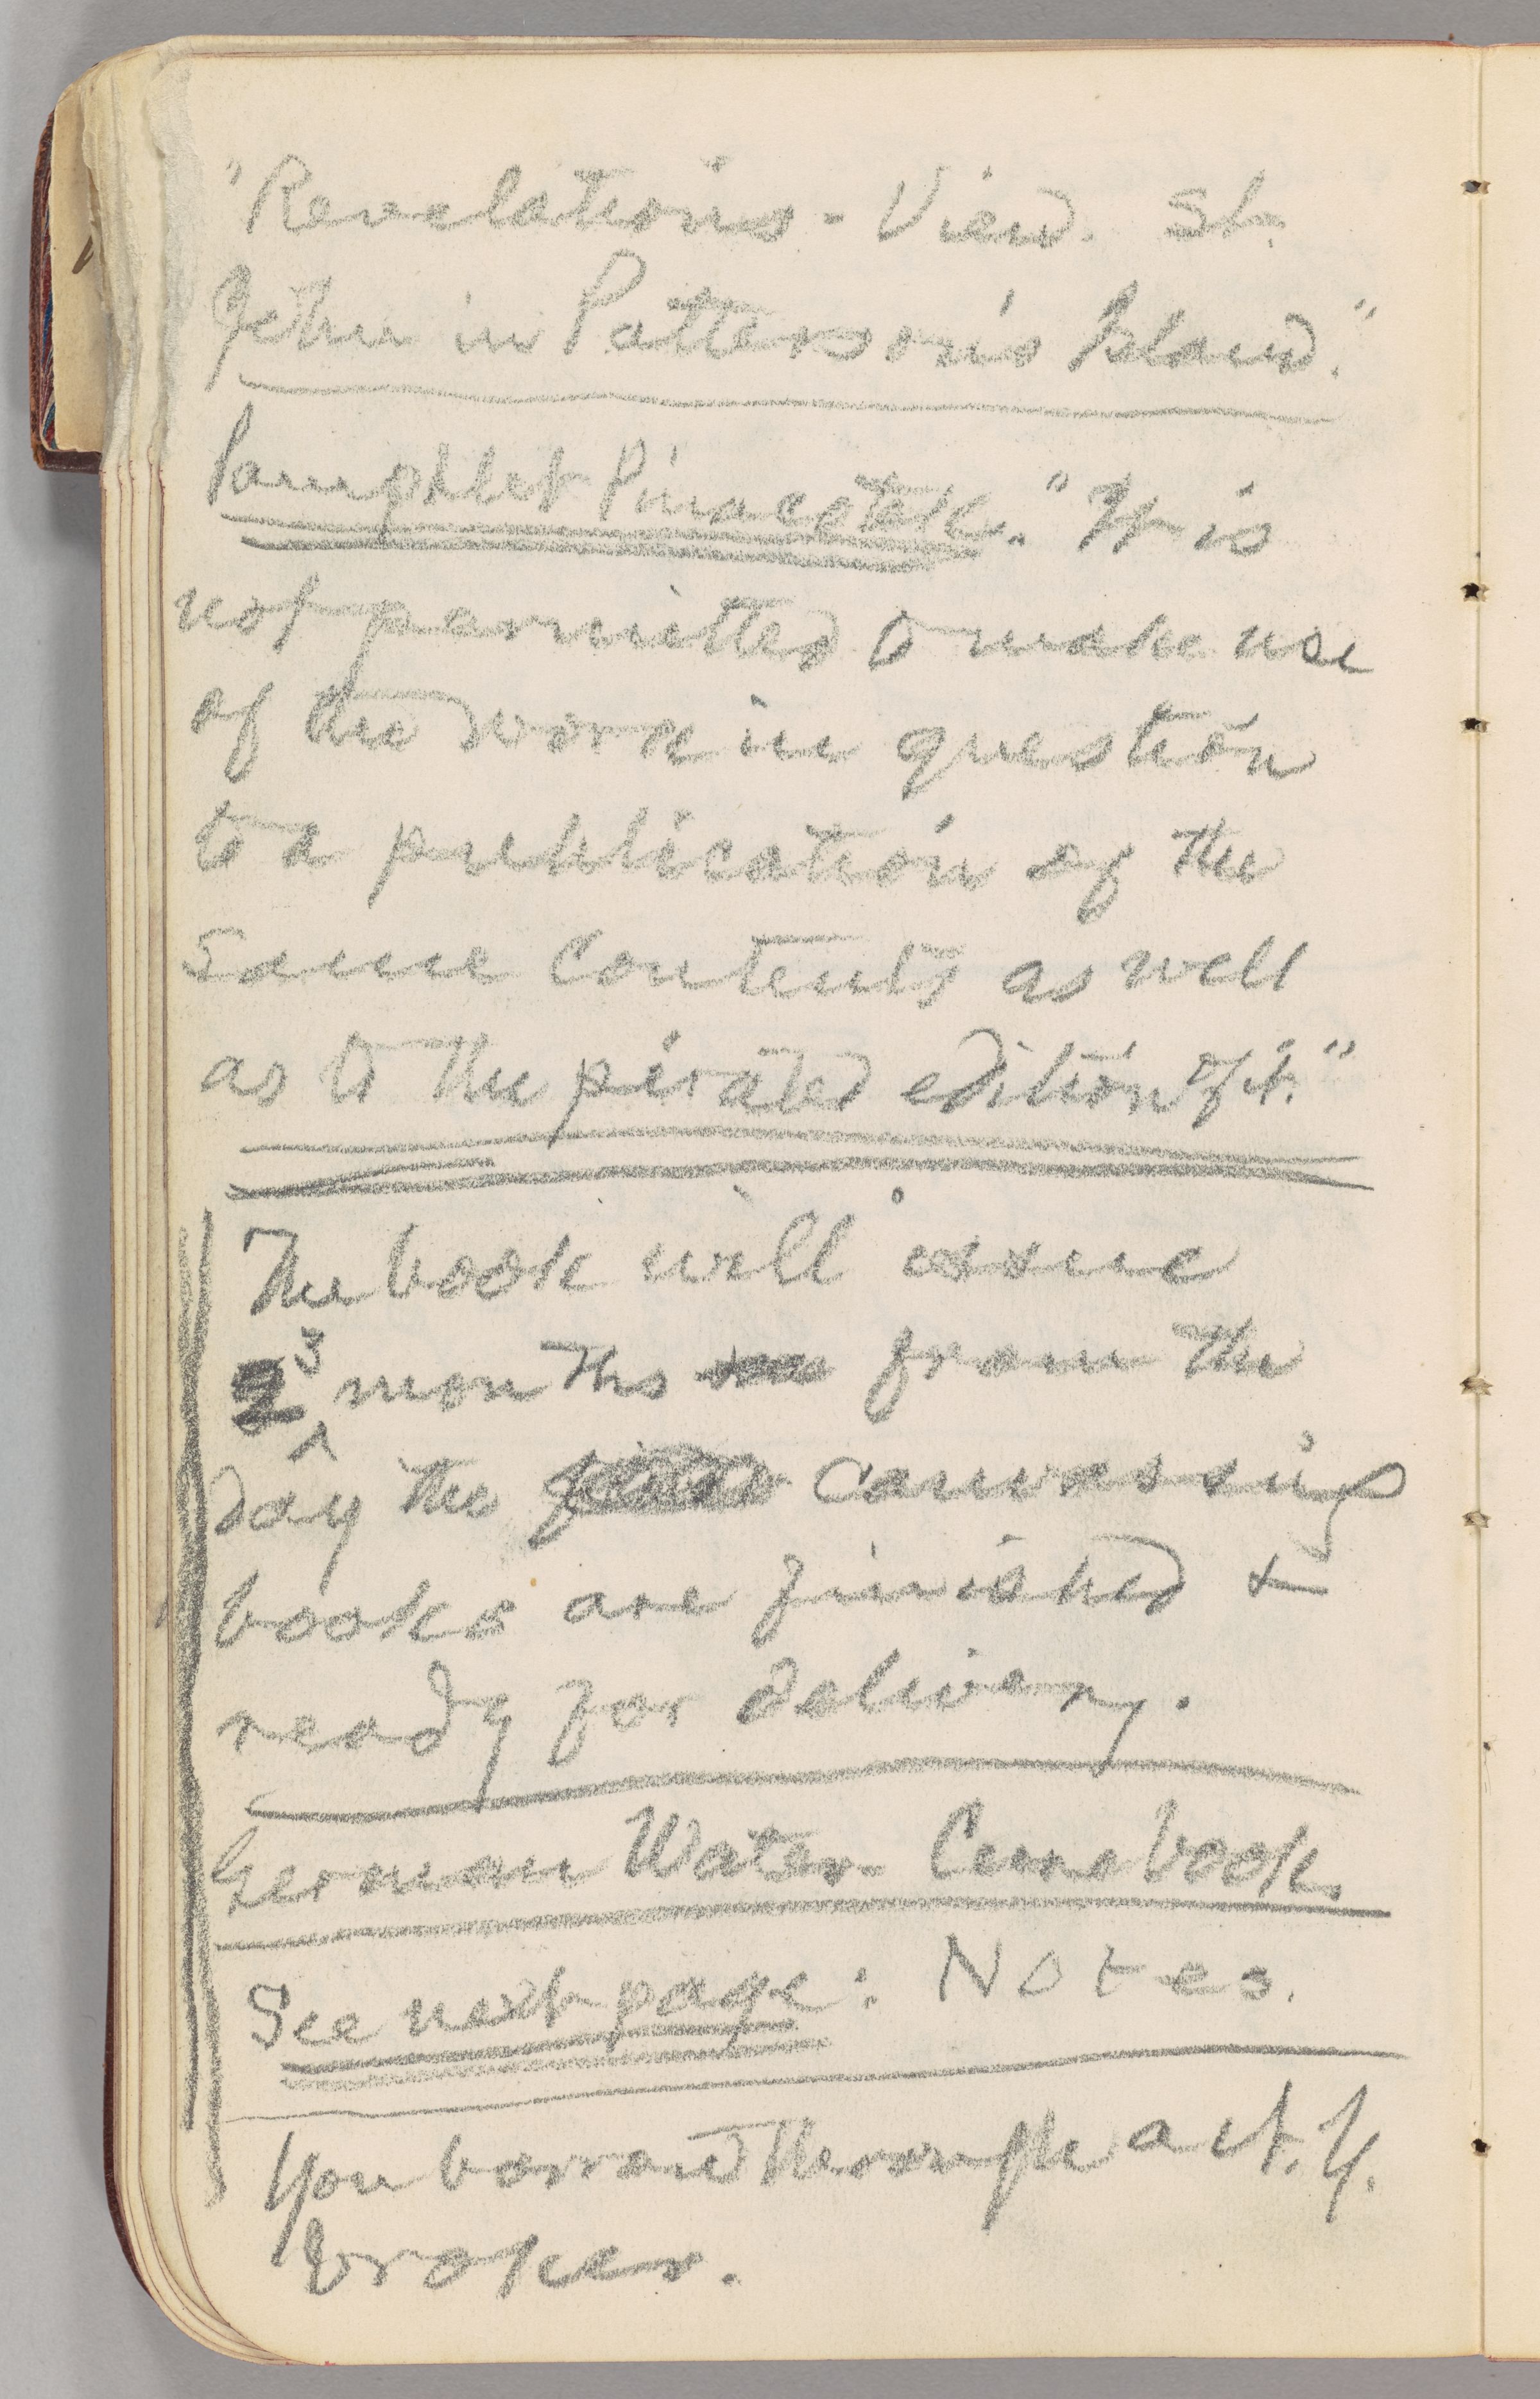 "Revelations - View. St.
John in Patterson's Island."
Pamphlet Pinacotek. "It is
not permitted to make use
of the work in question
to a publication of the
same contents as well
as to the pirated edition of it."
The book will issue
3 months from the
day the canvassing
books are finished &
ready for delivery.
German Water-Cure book.
See next page: Notes.
You borrow through a
broker.